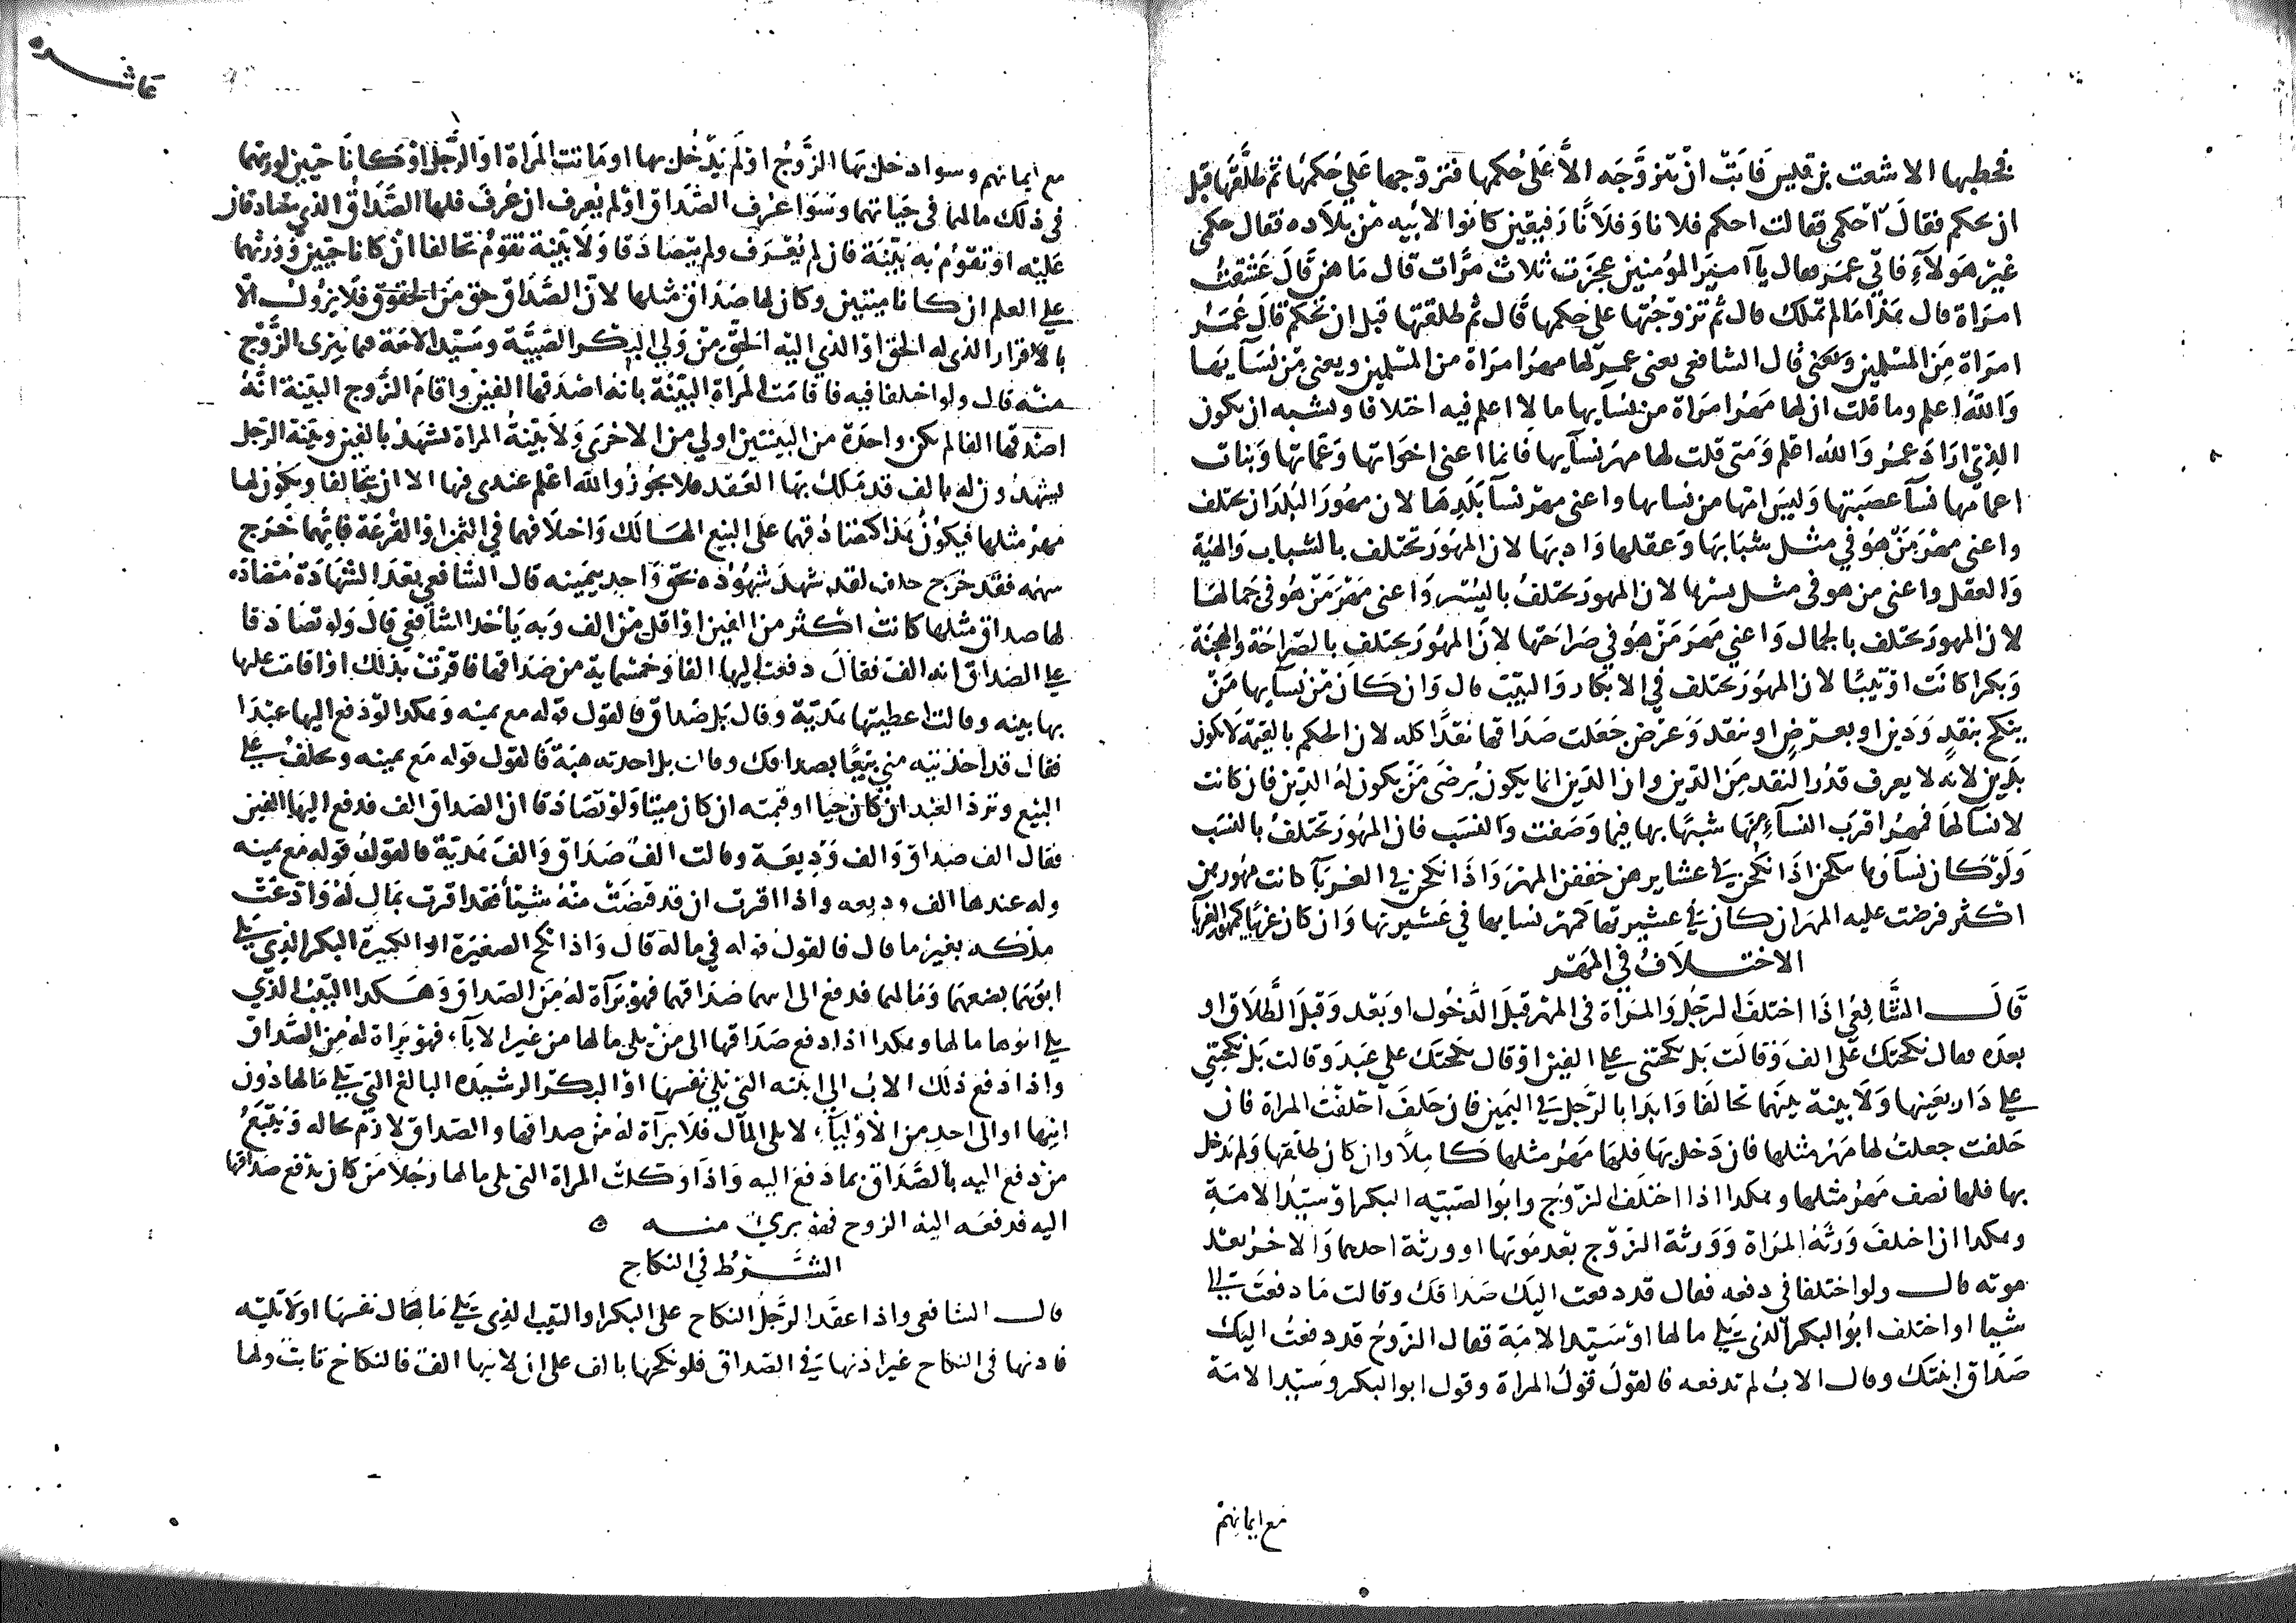 فخطبها الاشعث بن قيس فابت ان تتزوجه الا على حكمها فتزوجها على حكمها ثم طلقها قبل
ان تحكم فقال احكمي فقالت احكم فلانا وفلانا رفيقين كانوا لابيه من بلاده فقال حكمي
غير هولاء فاتى عمر فقال يا امير المؤمنين عجزت ثلاث مرات قال ما هن قال عشقت
امراة قال هذا ما لم تملك قال ثم تزوجتها على حكمها قال ثم طلقتها قبل ان تحكم قال عمر
امراة من المسلمين قال الشافعي يعني عمر لها مهر امراة من المسلمين ويعني من نسايها
والله اعلم وما قلت ان لها مهر امراة من نسايها ما لا اعلم فيه اختلافا ويشبه ان يكون
الذي اراد عمر والله اعلم ومتى قلت لها مهر نسايها فانما اعني اخواتها وعماتها وبنات
اعمامها نسا عصبتها وليس امها من نسايها واعني مهر نسا بلدها لان مهور البلدان تختلف
واعني مهر من هو في مثل شبابها وعقلها وادبها لان المهور تختلف بالشباب والهية
والعقل واعني من هو في مثل يسرها لان المهور تختلف باليسر واعني مهر من هو في جمالها
لان المهور تختلف بالجمال واعني مهر من هو في صراحتها لان المهور تختلف بالصراحة والهجنة
وبكرا كانت او ثيبا لان المهور تختلف في الابكار والثيب قال وان كان من نسايها من
ينكح بنقد ودين او بعرض او بنقد وعرض جعلت صداقها نقدا كله لان الحكم بالقيمة لا يكون
بدين لانه لا يعرف قدر النقد من الدين وان الدين انما يكون برضى من يكون له الدين فان كانت
لا نسا لها فمهر اقرب النساء منها شبها بها فيما وصفت والنسب فان المهور تختلف بالنسب
ولو كان نساوها ينكحن اذا نكحن في عشايرهن خففن المهر واذا نكحن في الغربا كانت مهورهن
اكثر فرضت عليه المهر ان كان في عشيرتها كمهر نسايها في عشيرتها وان كان غريبا كمهور الغربا
الاختلاف في المهر
قال الشافعي اذا اختلف الرجل والمراة في المهر قبل الدخول او بعد وقبل الطلاق او
بعده فقال نكحتك على الف وقالت بل نكحتني على الفين او قال نكحتك على عبد وقالت بل نكحتني
على دار بعينها ولا بينة بينهما تحالفا وابدا بالرجل في اليمين فان حلف احلفت المراة فان
حلفت جعلت لها مهر مثلها فان دخل بها فلها مهر مثلها كاملا وان كان طلقها ولم يدخل
بها فلها نصف مهر مثلها وهكذا اذا اختلف الزوج وابو الصبية البكر او سيد الامة
وهكذا ان اختلف ورثة المراة وورثة الزوج بعد موتها او ورثة احدهما والاخر بعد
موته قال ولو اختلفا في دفعه فقال قد دفعت اليك صداقك وقالت ما دفعت الي
شيا او اختلف ابو البكر الذي يلي مالها او سيد الامة فقال الزوج قد دفعت اليك
صداق ابنتك وقال الاب لم تدفعه فالقول قول المراة وقول ابو البكر وسيد الامة
مع ايمانهم
مع ايمانهم وسوا دخل بها الزوج او لم يدخل بها او ماتت المراة او الرجل او كانا حيين لورثتهما
في ذلك ما لهما في حياتهما وسوا عرف الصداق او لم يعرف ان عرف فلها الصداق الذي يتصادقان
عليه او تقوم به بينة فان لم يعرف ولم يتصادقا ولا بينة تقوم تحالفا ان كانا حيين وورثتهما
على العلم ان كانا ميتين وكان لها صداق مثلها لان الصداق حق من الحقوق فلا يزول الا
بالاقرار الذي له الحق او الذي اليه الحق من ولي البكر الصبية وسيد الامة مما يبرى الزوج
منه قال ولو اختلفا فيه فاقامت المراة البينة بانه اصدقها الفين واقام الزوج البينة انه
اصدقها الفا لم يكن واحدة من البينتين اولي من الاخرى ولا بينة المراة تشهد بالفين وبينة الرجل
يشهدون له بالف قد ملك بها العقد فلا يجوز والله اعلم عندي فيها الا ان يتحالفا ويكون لها
مهر مثلها فيكون هذا كتصادقهما على البيع الهالك واختلافهما في الثمن او القرعة فايهما خرج
سهمه فقد خرج حلف لقد شهد شهوده بحق واخذ بيمينه قال الشافعي بعد الشهادة متضادة
لها صداق مثلها كانت اكثر من الفين او اقل من الف وبه ياخذ الشافعي قال ولو تصادقا
على الصداق انه الف فقال دفعت اليها الفا وخمسماية من صداقها فاقرت بذلك او اقامت عليها
بها بينه وقالت اعطيتها هدية وقال بل صداق فالقول قوله مع يمينه وهكذا لو دفع اليها عبدا
فقال قد اخذتيه مني بيعا بصداقك وقالت بل اخذته هبة فالقول قوله مع يمينه وتحلف على
البيع وترد العبد ان كان حيا او قيمته ان كان ميتا ولو تصادقا ان الصداق الف فدفع اليها الفين
فقال الف صداق والف وديعة وقالت الف صداق والف هدية فالقول قوله مع يمينه
وله عندها الف وديعه واذا اقرت ان قد قبضت منه شيئا فقد اقرت بمال له وادعت
ملكه بغير ما قال فالقول قوله في ماله قال واذا نكح الصغيرة او الكبيرة البكر الذي يلي
ابوهما بضعهما ومالهما فدفع الى ابيهما صداقهما فهو براة له من الصداق وهكذا الثيب الذي
يلي ابوها مالها وهكذا اذا دفع صداقها الى من يلي مالها من غير الابآء فهو براة له من الصداق
واذا دفع ذلك الاب الى ابنته التي تلي نفسها او البكر الرشيده البالغ التي تلي مالها دون
ابيها او الى احد من الاوليآء لا يلى المال فلا براة له من صداقها والصداق لازم بحاله ويتبع
من دفع اليه بالصداق بما دفع اليه واذا وكلت المراة التي تلي مالها رجلا من كان يدفع صداقها
اليه فدفعه اليه الزوج فهو بريء منه ه
الشرط في النكاح
قال الشافعي واذا عقد الرجل النكاح على البكر او الثيب الذي يلي مالها نفسها او لا تليه
فاذنها في النكاح غير اذنها في الصداق فلو نكحها بالف على ان لابيها الف فالنكاح ثابت ولها